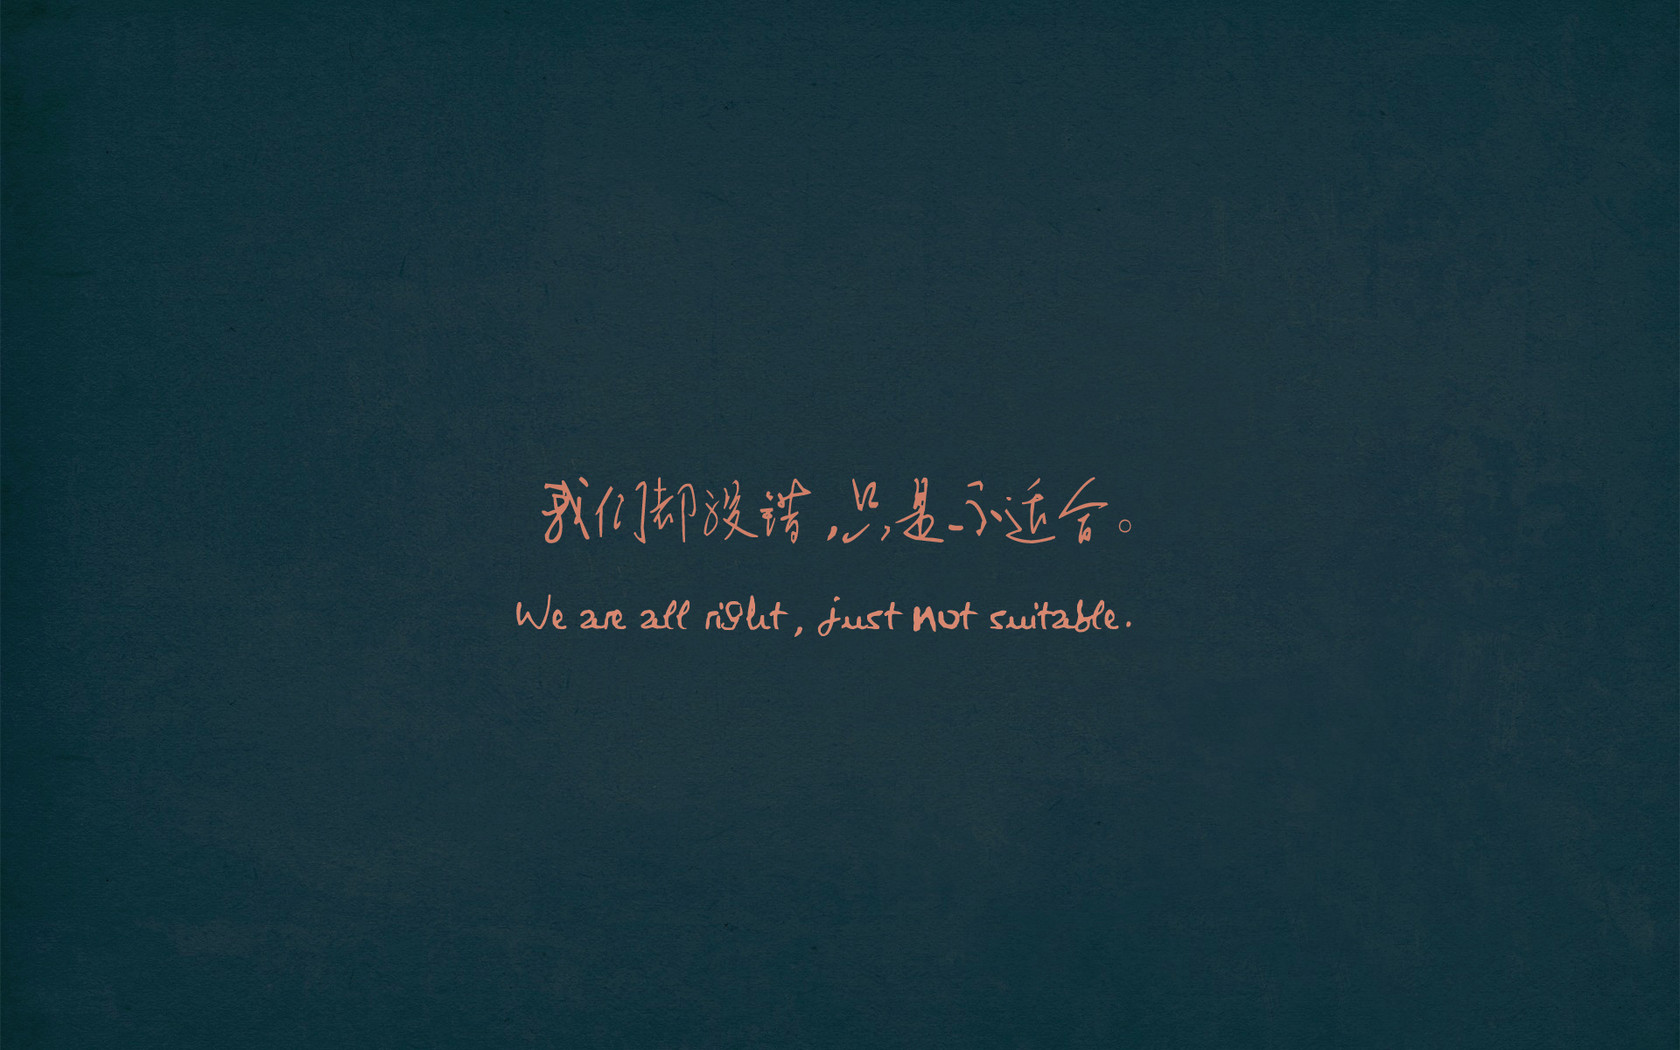 我们却没错,只是不适合。
We are all right, just not suitable.